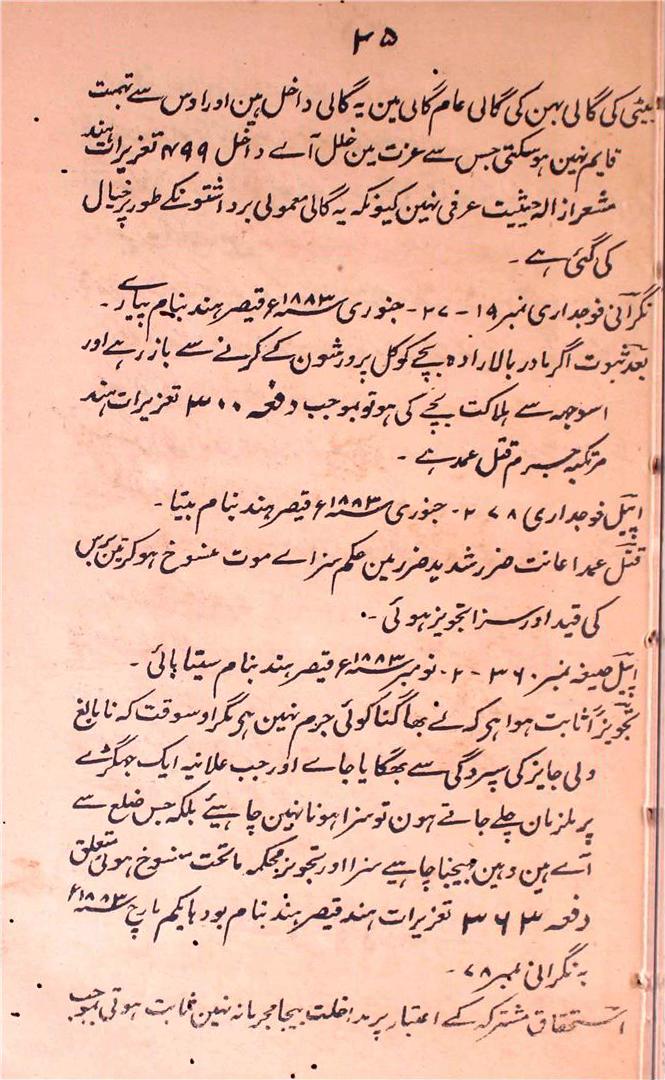 ۳۵
بیٹی کی گالی بہن کی گالی عام گالی مین یہ گالی داخل ہین اور اوس سے تہمت
قایم نہین ہوسکتی جس سے عزت مین خلل آے داخل ۴۹۹ تعزیرات ہند
مشعر ازالہ حیثیت عرفی نہین کیونکہ یہ گالی معمولی برداشتونکے طور پر خیال
کی گئی ہے ۔
نگرانی فوجداری نمبر ۱۹ - ۲۷ - جنوری سنہ ۱۸۸۳ء قیصر ہند بنام پیارے ۔
بعد ثبوت اگر مادر بالارادہ بچے کو کل پرورشون کے کرنے سے باز رہے اور
اسوجہ سے ہلاکت بچے کی ہو تو بموجب دفعہ ۳۰۰ تعزیرات ہند
مرتکبہ جرم قتل عمد ہے ۔
اپیل فوجداری ۲۷۸ - جنوری سنہ ۱۸۸۳ء قیصر ہند بنام بیتا ۔
قتل عمد اعانت ضرر شدید ضرر مین حکم سزاے موت منسوخ ہوکر تین برس
کی قید اور سزا تجویز ہوئی ۔
اپیل صیغہ نمبر ۳۶۰ - ۲ - نومبر سنہ ۱۸۸۳ء قیصر ہند بنام سیتا پائی ۔
تجویزاً ثابت ہوا ہی کہ لے بھاگنا کوئی جرم نہین ہی مگر اوسوقت کہ نابالغ
ولی جایز کی سپردگی سے بھگایا جاے اور جب علانیہ ایک جھگڑے
پر ملزمان چلے جاتے ہون تو سزا ہونا نہین چاہیئے بلکہ جس ضلع سے
آے ہین وہین بھیجنا چاہیے سزا اور تجویز محکمہ ماتحت منسوخ ہوئی متعلق
دفعہ ۳۶۳ تعزیرات ہند قیصر ہند بنام بودہا یکم مارچ سنہ ۱۸۸۳ء
بہ نگرانی نمبر ۷۸ ۔
استحقاق مشترکہ کے اعتبار پر مداخلت بیجا مجرمانہ نہین ثابت ہوتی بموجب